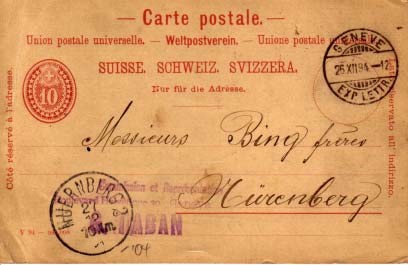 — Carte postale. —
Union postale universelle. — Weltpostverein. — Unione postale universale
SUISSE. SCHWEIZ. SVIZZERA.
Nur für die Adresse.
Côté réservé à l'adresse.
riservato all'indirizzo.
10
GENÈVE
26.XII.94.-12
EXP. LETTR.
Messieurs Bing frères
Nürenberg
et
NUERNBERG 2
27
12
RABAN
V 94
'04